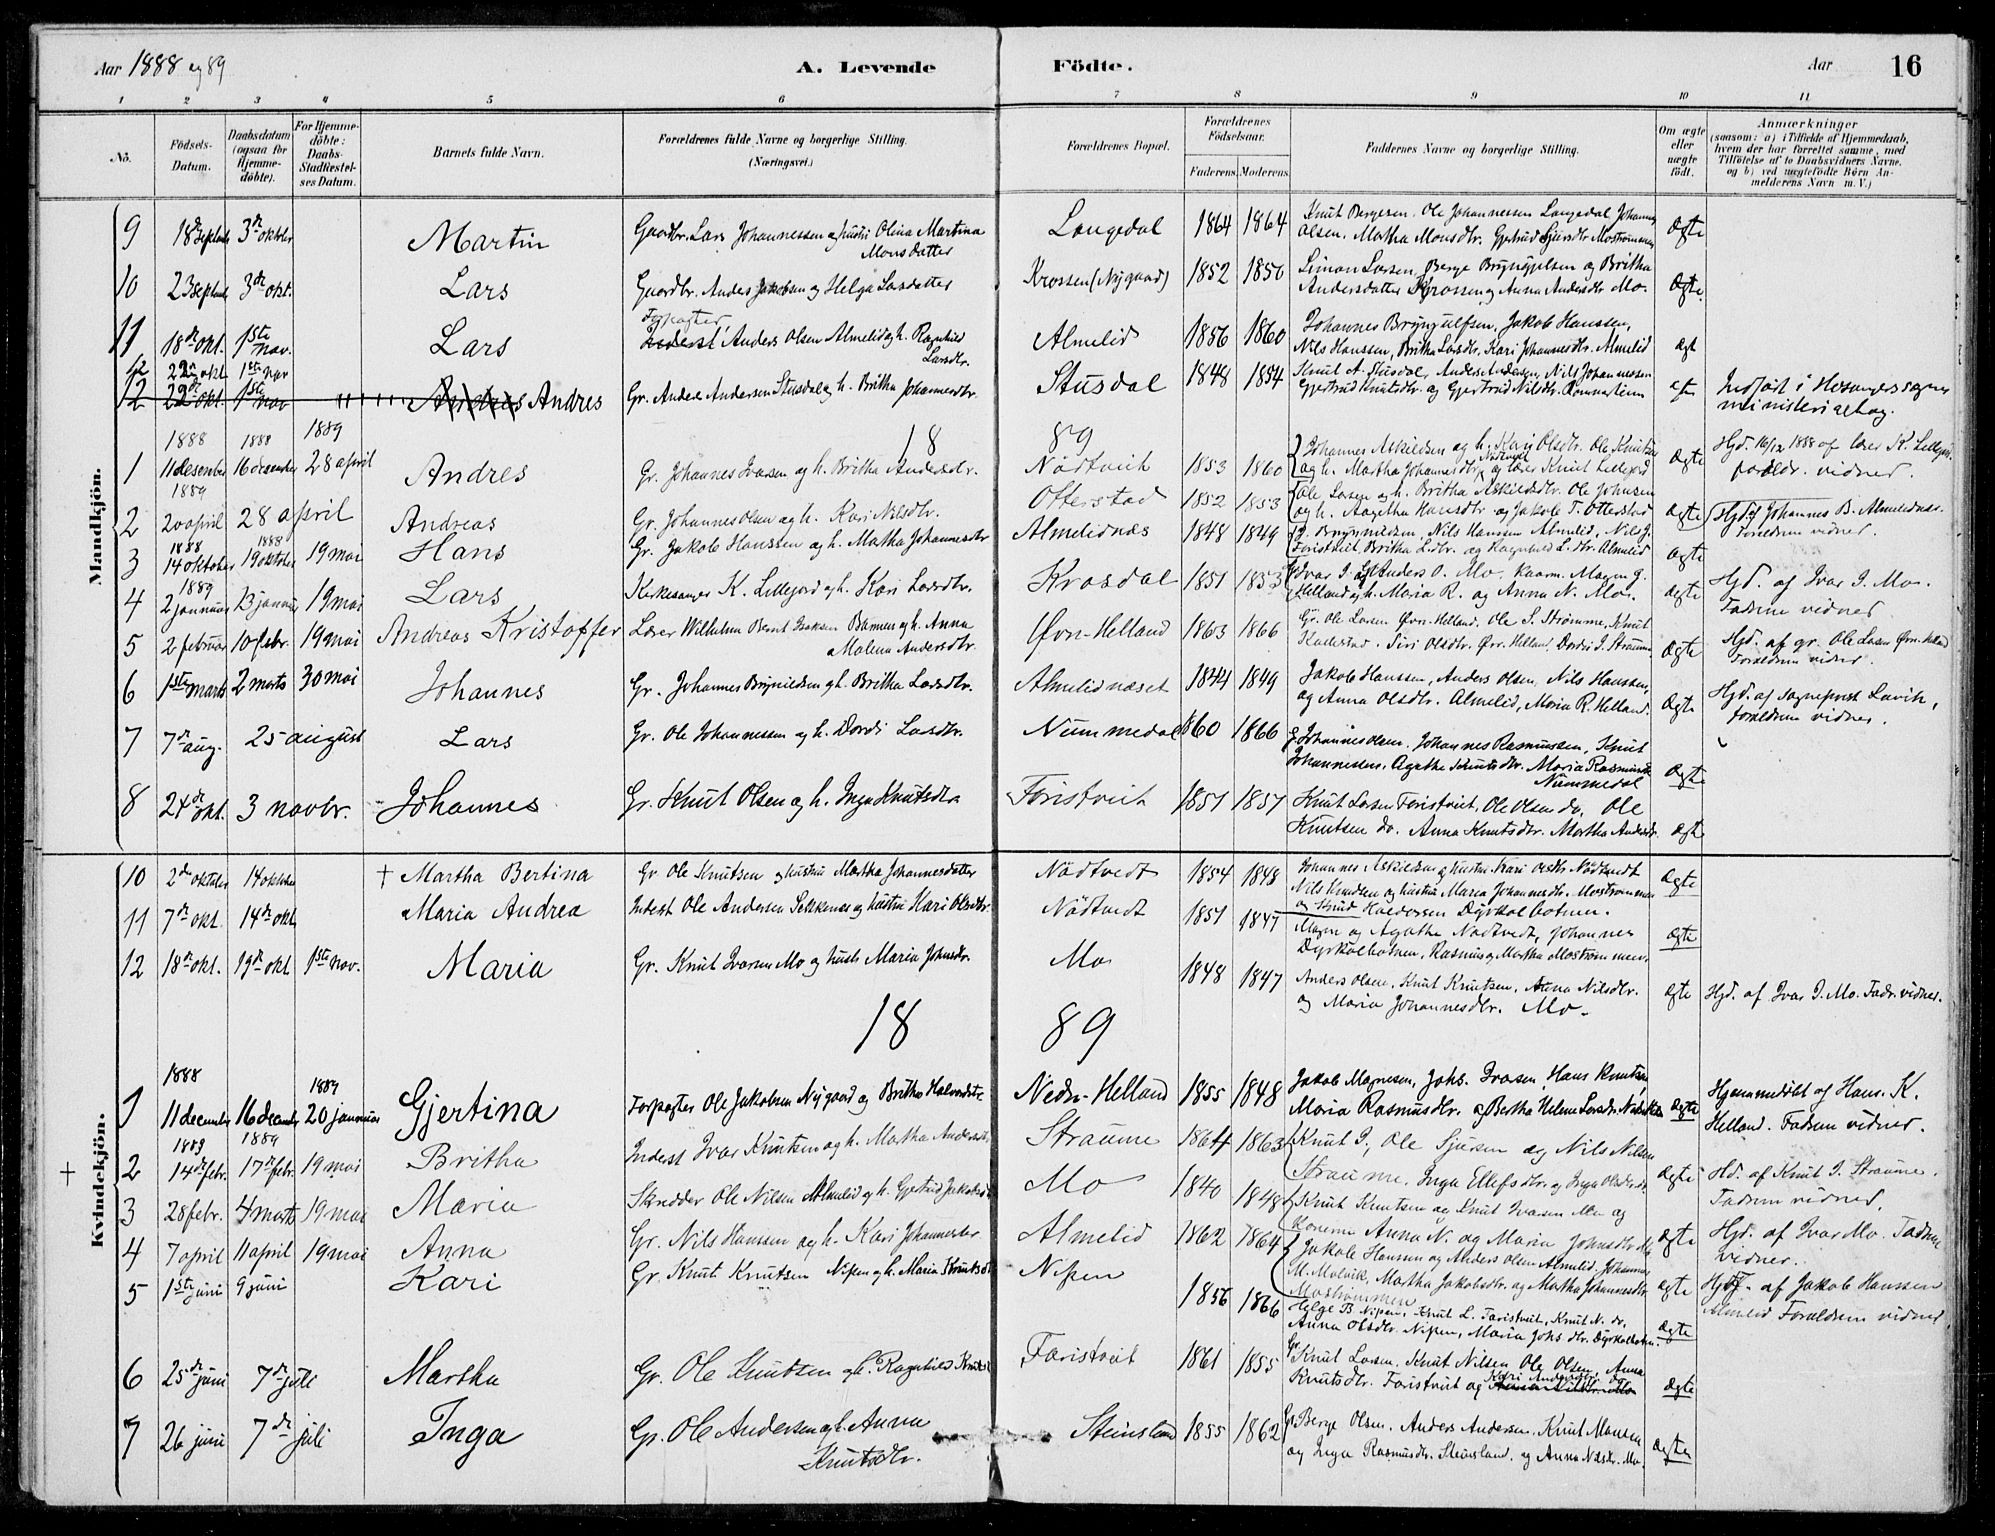 Aar 1888 og 89
A. Levende
Födte.
Aar
16
1 2 3 4 5 6 7 8 9 10 11
No.
Födsels-Datum.
Daabsdatum (ogsaa for Hjemme-döbte).
For Hjemme-döbte: Daabs-Stadfæstel-ses Datum.
Barnets fulde Navn.
Forældrenes fulde Navne og borgerlige Stilling. (Næringsvei.)
Forældrenes Bopæl.
Forældrenes Födselsaar.
Faderens. Moderens.
Faddernes Navne og borgerlige Stilling.
Om ægte eller uægte födt.
Anmærkninger (saasom: a) i Tilfælde af Hjemmedaab, hvem der har forrettet samme, med Tilföielse af to Daabsvidners Navne. og b) ved uægtefödte Börn An-melderens Navn m. V.)
Mandkjön.
9 18de septembr 3de oktbr Martin Gaardbr. Lars Johannessen og hustru Olina Martina
Monsdatter
Langedal 1864 1864 Knut Bergesen. Ole Johannessen Langedal Johannes
Olsen. Martha Monsdtr. Gjertrud Sjursdtr Mostrommen Ægte
10 23 septemb 3de okt. Lars Gaardbr. Anders Jakobsen og Helga Larsdatter
Krossen (Nygaard) 1852 1850 Simon Larsen, Berge Brynjelsen og Britha
Andersdatter Krossen og Anna Andersdtr Mo. Ægte
11 18de okt. 1ste nov. Lars Forpagter
Anders Olsen Almelid og h. Ragnhild
Larsdtr.
Almelid 1856 1860 Johannes Brynjulfsen, Jakob Hanssen,
Nils Hanssen, Britha Larsdtr, Kari Johannesdtr. Almelid ægt
12 22de okt 1ste nov
12 22de okt. 1ste nov Andres Andres Gr. Anders Andersen Stusdal og h. Britha Johannesdtr.
Stusdal 1848 1854 Knut A. Stusdal, Anders Andersen, Nils Johannessen
Gjertrud Knutsdtr. og Gjertrud Nilsdtr. Rommarheim
Indført i Hosangers sogns
ministerialbog.
1888 1888 1889
18 89
1 11 desember 16 desember 28 april Andres Gr. Johannes Ivarsen og h. Britha Andersdtr.
Nödtveit 1853 1860 Johannes Askildsen og h. Kari Olsdtr. Ole Knutsen
og h. Martha Johannesdtr. Nödtveit og lærer Knut Lillejord Ægte
Hjd. 16/12 1888 af lærer K. Lillejord.
foreldr. vidner.
1889
2 20 april 28 april Andreas Gr. Johannes Olsen og h. Kari Nilsdtr.
Otterstad 1852 1853 Ole Larsen og h. Britha Askildsdtr. Ole Johnsen
og h. Aagetha Hansdtr og Jakob T. Otterstad Ægte
1888 1888
3 14 oktober 19 oktober 19 mai Hans Gr. Jakob Hanssen og h. Martha Johannesdtr
Almelidnæs 1848 1849 J. Brynjulfsen, Nils Hanssen Almelid, Nils J.
Foristveit, Britha L.dtr. og Ragnhild L. dtr. Almelid Ægte
Hjd. af Johannes B. Almelidnæs.
Foreldrene vidner.
1889
4 2 januar 13 januar 19 mai Lars Kirkesanger K. Lillejord og h. Kari Larsdtr.
Krosdal 1851 1853 Ivar I. og Anders O. Mo. Kaarm. Magne G.
Helland og h. Maria R. og Anna N. Mo. Ægte
Hjd. af Ivar I. Mo.
Fadrene vidner
5 2 februar 10 febr. 19 mai Andreas Kristoffer Lærer Wilhelm Bernt Isaksen Bamen og h. Anna
Malena Andersdtr.
Øvn-Helland 1863 1866 Gr. Ole Larsen Øvr.-Helland. Ole S. Strømme, Knut
Hadestad. Siri Olsdtr. Øvr. Helland. Dordi I. Straume Ægte
Hjd. af gr. Ole Larsen Øvr. Helland
Foreldrene vidner.
6 1ste marts 2 marts 30 mai Johannes Gr. Johannes Brynildsen og h. Britha Larsdtr.
Almelidnæset 1844 1849 Jakob Hanssen, Anders Olsen, Nils Hanssen,
og Anna Olsdtr. Almelid, Maria R. Helland. Ægte
Hjd. af sogneprest Lavik,
foreldrene vidner.
7 7de aug. 25 august Lars Gr. Ole Johannessen og h. Dordi Larsdtr.
Nummedal 1860 1866 Johannes Olsen. Johannes Rasmussen, Knut
Johannessen. Agathe Knutsdtr. Maria Rasmusdtr
Nummedal Ægte
8 24de okt. 3 novbr. Johannes Gr. Knut Olsen og h. Inga Knutsdtr
Foristveit 1851 1857 Knut Larsen Foristveit, Ole Olsen do, Ole
Knutsen do. Anna Knutsdtr. Martha Andersdtr. ægte
Kvindekjön.
10 2de oktober 14 oktober † Martha Bertina Gr Ole Knutsen og hustru Martha Johannesdatter
Nödtvedt 1854 1848 Johannes Askildsen og hustru Kari Olsdtr Nödtvedt
Nils Knudsen og hustru Maria Johannesdtr. Mostrommen
og Knud Haldorsen Dyrkolbotnen. Ægte
11 7de okt. 14de okt Maria Andrea Inderst Ole Andersen Sekkenæs og hustru Kari Olsdtr.
Nödtvedt 1851 1847 Magne og Agathe Nodtvedt, Johannes
Dyrkolbotnen, Rasmus og Martha Mostrommen. ægte
12 18de okt. 19de okt 1ste nov. Maria Gr. Knut Ivarsen Mo og hustr Maria Johnsdtr.
Mo 1848 1847 Anders Olsen, Knut Knutsen, Anna Nilsdtr.
og Maria Johannesdtr. Mo. ægte
Hjd. af Ivar I. Mo. Fadr. vidner.
18 89
1888 1889
1 11 december 16 december 20 januar Gjertina Forpagter Ole Jakobsen Nygaard og Britha Halvardsdtr.
Nedr-Helland 1855 1848 Jakob Magnesen, Johs. Ivarsen, Hans Knutsen,
Maria Rasmusdtr. og Bertha Helene Larsdtr. Ægte
Hjemmedöbt af Hans. K.
Helland. Fadrene vidner.
1889 1889
† 2 14de febr. 17de febr. 19 mai Britha Inderst Ivar Knutsen og h. Martha Andersdtr.
Straume 1864 1863 Knut I, Ole Sjursen og Nils Nilsen
Straume. Inga Ellefsdtr. og Inga Olsdtr. do. ægte
Hd. af Knut I. Straume.
Fadrene vidner.
3 28 febr. 4 marts 19 mai Maria Skredder Ole Nilsen Almelid og h. Gjertrud Jakobsd
Mo 1840 1848 Knut Knutsen og Knut Ivarsen Mo og
Konerne Anna N. og Maria Johnsdtr Mo ægte
Hjd. af Ivar Mo. Fadrene
vidner.
4 7 april 11 april 19 mai Anna Gr. Nils Hanssen og h. Kari Johannesdtr
Almelid 1862 1864 Jakob Hanssen og Anders Olsen Almelid. Johannes
M. Molvik, Martha Jakobsdtr. og Martha Johannesdtr.
Mostrommen ægte
Hjd. af Jakob Hanssen
Almelid Foreldrene vidner.
5 1ste juni 9 juni Kari Gr. Knut Knutsen Nipen og h. Maria Knutsd
Nipen 1856 1866 Helge B. Nipen, Knut L. Faristveit, Knut N. do.
Anna Olsdtr. Nipen, Maria Johs. dtr. Dyrkolbotn. ægte
6 25de juni 7de juli Martha Gr. Ole Knutsen og h. Ragnhild Knutsd
Faristveit 1861 1855 Gr. Knut Larsen. Knut Nilsen Ole Olsen, Anna
Knutsdtr. Faristveit og Kari Andersdtr. do ægte
7 26 juni 7de juli Inga Gr. Ole Andersen og h. Anna
Knutsdtr.
Steinsland 1855 1862 Gr Berge Olsen. Anders Andersen. Knut Monsen
og Inga Rasmusdtr. Steinsland. og Anna Nilsdtr. Mo. ægte